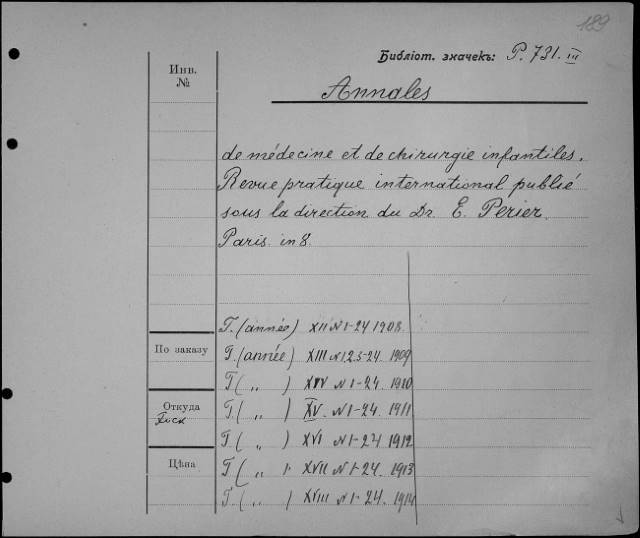 189
Библіот. значекъ: P. 731. III
Инв.
№
Annales
de médecine et de chirurgie infantiles.
Revue pratique international publié
sous la direction du Dr. E. Perier.
Paris. in 8.
T. (année) XII N 1-24 1908.
По заказу
T. (année) XIII N 1,2,5-24. 1909
T ( ,, ) XIV N 1-24. 1910
Откуда
T. ( ,, ) XV. N 1-24. 1911
T ( ,, ) XVI N 1-24 1912
Цѣна
T ( ,, ) XVII N 1-24. 1913
T. ( ,, ) XVIII N 1-24. 1914